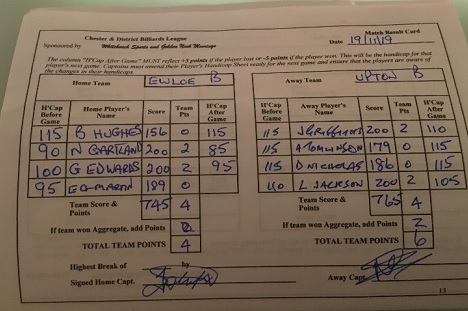 Chester & District Billiards League
Match Result Card
Sponsored by Whitchurch Sports and Golden Nook Moorings
Date 19/11/19
The column "H'Cap After Game" MUST reflect +5 points if the player lost or -5 points if the player won. This will be the handicap for that player's next game. Captains must amend their Player's Handicap Sheet ready for the next game and ensure that the players are aware of the changes in their handicaps.
Home Team EWLOE B
Away Team UPTON B
H'Cap Before Game Home Player's Name Score Team Pts H'Cap After Game
115 B HUGHES 156 0 115
90 N GARTLAND 200 2 85
100 G EDWARDS 200 2 95
95 189 0
Team Score & Points 745 4
If team won Aggregate, add Points
TOTAL TEAM POINTS 4
H'Cap Before Game Away Player's Name Score Team Pts H'Cap After Game
115 J GRIFFITHS 200 2 110
115 A TOMLINSON 179 0 115
115 D NICHOLAS 186 0 115
110 L JACKSON 200 2 105
Team Score & Points 765 4
If team won Aggregate, add Points 2
TOTAL TEAM POINTS 6
Highest Break of by
Signed Home Capt.
Away Capt.
13